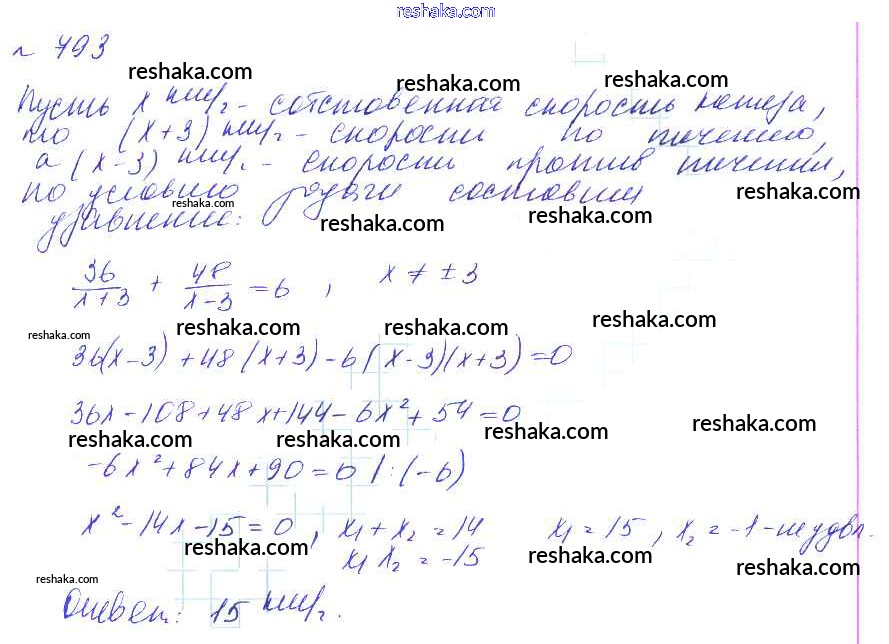 reshaka.com
№ 793
reshaka.com reshaka.com reshaka.com
Пусть x км/ч - собственная скорость катера,
то (x+3) км/ч - скорость по течению,
а (x-3) км/ч - скорость против течения,
по условию задачи составим
reshaka.com reshaka.com
уравнение:
reshaka.com reshaka.com
36/(x+3) + 48/(x-3) = 6, x ≠ ±3
reshaka.com reshaka.com reshaka.com reshaka.com
36(x-3) + 48(x+3) - 6(x-3)(x+3) = 0
36x - 108 + 48x + 144 - 6x² + 54 = 0
reshaka.com reshaka.com reshaka.com reshaka.com
-6x² + 84x + 90 = 0 | : (-6)
x² - 14x - 15 = 0, x₁ + x₂ = 14 x₁ = 15, x₂ = -1 - не удвл.
x₁ x₂ = -15
reshaka.com reshaka.com reshaka.com
reshaka.com
Ответ: 15 км/ч.